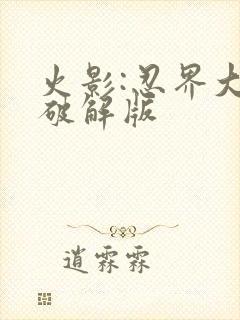 火影:忍界大
破解版
逍霖霖